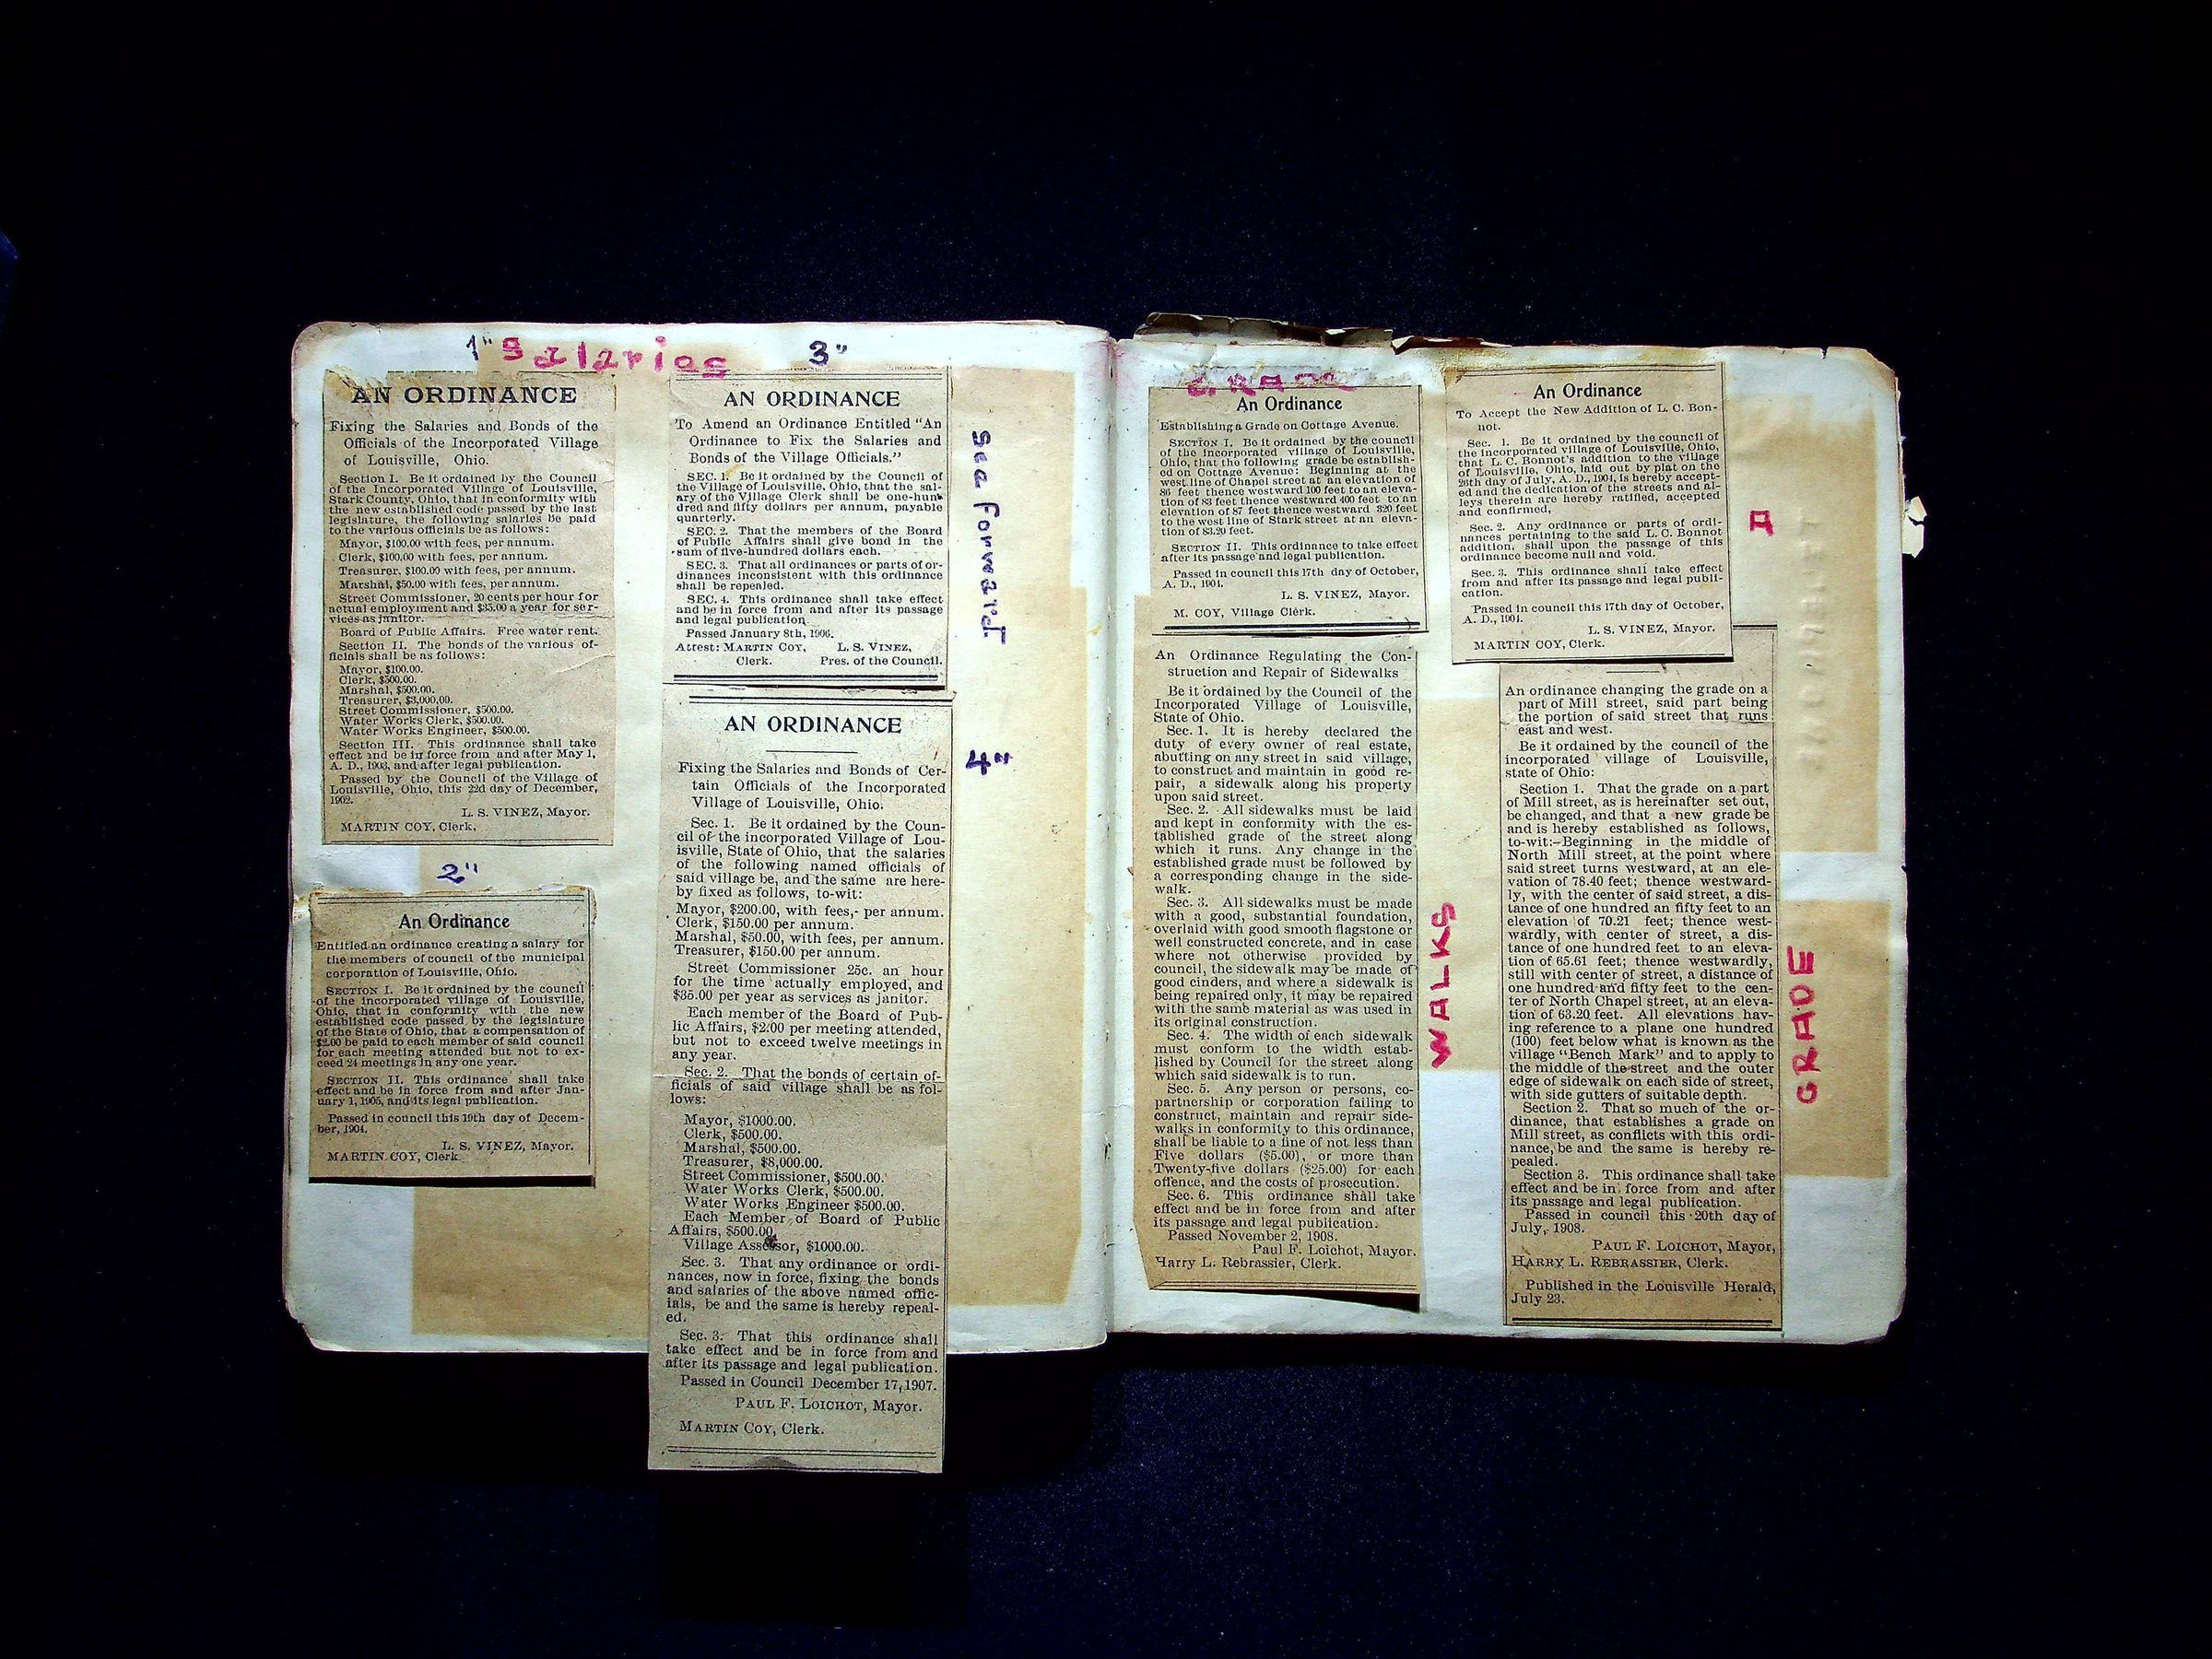 1" Salaries
AN ORDINANCE
Fixing the Salaries and Bonds of the
Officials of the Incorporated Village
of Louisville, Ohio.
Section I. Be it ordained by the Council
of the Incorporated Village of Louisville,
Stark County, Ohio, that in conformity with
the new established code passed by the last
legislature, the following salaries be paid
to the various officials be as follows:
Mayor, $100.00 with fees, per annum.
Clerk, $100.00 with fees, per annum.
Treasurer, $100.00 with fees, per annum.
Marshal, $50.00 with fees, per annum.
Street Commissioner, 20 cents per hour for
actual employment and $35.00 a year for ser-
vices as janitor.
Board of Public Affairs. Free water rent.
Section II. The bonds of the various of-
ficials shall be as follows:
Mayor, $100.00.
Clerk, $500.00.
Marshal, $500.00.
Treasurer, $3,000.00.
Street Commissioner, $500.00.
Water Works Clerk, $500.00.
Water Works Engineer, $500.00.
Section III. This ordinance shall take
effect and be in force from and after May 1,
A. D., 1903, and after legal publication.
Passed by the Council of the Village of
Louisville, Ohio, this 22d day of December,
1902.
L. S. VINEZ, Mayor.
MARTIN COY, Clerk.
2"
An Ordinance
Entitled an ordinance creating a salary for
the members of council of the municipal
corporation of Louisville, Ohio.
SECTION I. Be it ordained by the council
of the incorporated village of Louisville,
Ohio, that in conformity with the new
established code passed by the legislature
of the State of Ohio, that a compensation of
$2.00 be paid to each member of said council
for each meeting attended but not to ex-
ceed 24 meetings in any one year.
SECTION II. This ordinance shall take
effect and be in force from and after Jan-
uary 1, 1905, and its legal publication.
Passed in council this 19th day of Decem-
ber, 1904.
L. S. VINEZ, Mayor.
MARTIN COY, Clerk.
3"
AN ORDINANCE
To Amend an Ordinance Entitled "An
Ordinance to Fix the Salaries and
Bonds of the Village Officials."
SEC. 1. Be it ordained by the Council of
the Village of Louisville, Ohio, that the sal-
ary of the Village Clerk shall be one-hun-
dred and fifty dollars per annum, payable
quarterly.
SEC. 2. That the members of the Board
of Public Affairs shall give bond in the
sum of five-hundred dollars each.
SEC. 3. That all ordinances or parts of or-
dinances inconsistent with this ordinance
shall be repealed.
SEC. 4. This ordinance shall take effect
and be in force from and after its passage
and legal publication.
Passed January 8th, 1906.
Attest: MARTIN COY, L. S. VINEZ,
Clerk. Pres. of the Council.
See forward
4"
AN ORDINANCE
Fixing the Salaries and Bonds of Cer-
tain Officials of the Incorporated
Village of Louisville, Ohio.
Sec. 1. Be it ordained by the Coun-
cil of the incorporated Village of Lou-
isville, State of Ohio, that the salaries
of the following named officials of
said village be, and the same are here-
by fixed as follows, to-wit:
Mayor, $200.00, with fees, per annum.
Clerk, $150.00 per annum.
Marshal, $50.00, with fees, per annum.
Treasurer, $150.00 per annum.
Street Commissioner 25c. an hour
for the time actually employed, and
$35.00 per year as services as janitor.
Each member of the Board of Pub-
lic Affairs, $2.00 per meeting attended,
but not to exceed twelve meetings in
any year.
Sec. 2. That the bonds of certain of-
ficials of said village shall be as fol-
lows:
Mayor, $1000.00.
Clerk, $500.00.
Marshal, $500.00.
Treasurer, $8,000.00.
Street Commissioner, $500.00.
Water Works Clerk, $500.00.
Water Works Engineer $500.00.
Each Member of Board of Public
Affairs, $500.00.
Village Assessor, $1000.00.
Sec. 3. That any ordinance or ordi-
nances, now in force, fixing the bonds
and salaries of the above named offic-
ials, be and the same is hereby repeal-
ed.
Sec. 3. That this ordinance shall
take effect and be in force from and
after its passage and legal publication.
Passed in Council December 17, 1907.
PAUL F. LOICHOT, Mayor.
MARTIN COY, Clerk.
GRADE
An Ordinance
Establishing a Grade on Cottage Avenue.
SECTION I. Be it ordained by the council
of the incorporated village of Louisville,
Ohio, that the following grade be establish-
ed on Cottage Avenue: Beginning at the
west line of Chapel street at an elevation of
86 feet thence westward 100 feet to an eleva-
tion of 83 feet thence westward 400 feet to an
elevation of 87 feet thence westward 320 feet
to the west line of Stark street at an eleva-
tion of 83.20 feet.
SECTION II. This ordinance to take effect
after its passage and legal publication.
Passed in council this 17th day of October,
A. D., 1904.
L. S. VINEZ, Mayor.
M. COY, Village Clerk.
An Ordinance Regulating the Con-
struction and Repair of Sidewalks
Be it ordained by the Council of the
Incorporated Village of Louisville,
State of Ohio.
Sec. 1. It is hereby declared the
duty of every owner of real estate,
abutting on any street in said village,
to construct and maintain in good re-
pair, a sidewalk along his property
upon said street.
Sec. 2. All sidewalks must be laid
and kept in conformity with the es-
tablished grade of the street along
which it runs. Any change in the
established grade must be followed by
a corresponding change in the side-
walk.
Sec. 3. All sidewalks must be made
with a good, substantial foundation,
overlaid with good smooth flagstone or
well constructed concrete, and in case
where not otherwise provided by
council, the sidewalk may be made of
good cinders, and where a sidewalk is
being repaired only, it may be repaired
with the same material as was used in
its original construction.
Sec. 4. The width of each sidewalk
must conform to the width estab-
lished by Council for the street along
which said sidewalk is to run.
Sec. 5. Any person or persons, co-
partnership or corporation failing to
construct, maintain and repair side-
walks in conformity to this ordinance,
shall be liable to a fine of not less than
Five dollars ($5.00), or more than
Twenty-five dollars ($25.00) for each
offence, and the costs of prosecution.
Sec. 6. This ordinance shall take
effect and be in force from and after
its passage and legal publication.
Passed November 2, 1908.
Paul F. Loichot, Mayor.
Harry L. Rebrassier, Clerk.
WALKS
An Ordinance
To Accept the New Addition of L. C. Bon-
not.
Sec. 1. Be it ordained by the council of
the incorporated village of Louisville, Ohio,
that L. C. Bonnot's addition to the village
of Louisville, Ohio, laid out by plat on the
26th day of July, A. D., 1904, is hereby accept-
ed and the dedication of the streets and al-
leys therein are hereby ratified, accepted
and confirmed,
Sec. 2. Any ordinance or parts of ordi-
nances pertaining to the said L. C. Bonnot
addition, shall upon the passage of this
ordinance become null and void.
Sec. 3. This ordinance shall take effect
from and after its passage and legal publi-
cation.
Passed in council this 17th day of October,
A. D., 1904.
L. S. VINEZ, Mayor.
MARTIN COY, Clerk.
A
An ordinance changing the grade on a
part of Mill street, said part being
the portion of said street that runs
east and west.
Be it ordained by the council of the
incorporated village of Louisville,
state of Ohio:
Section 1. That the grade on a part
of Mill street, as is hereinafter set out,
be changed, and that a new grade be
and is hereby established as follows,
to-wit:-Beginning in the middle of
North Mill street, at the point where
said street turns westward, at an ele-
vation of 78.40 feet; thence westward-
ly, with the center of said street, a dis-
tance of one hundred an fifty feet to an
elevation of 70.21 feet; thence west-
wardly, with center of street, a dis-
tance of one hundred feet to an eleva-
tion of 65.61 feet; thence westwardly,
still with center of street, a distance of
one hundred and fifty feet to the cen-
ter of North Chapel street, at an eleva-
tion of 63.20 feet. All elevations hav-
ing reference to a plane one hundred
(100) feet below what is known as the
village "Bench Mark" and to apply to
the middle of the street and the outer
edge of sidewalk on each side of street,
with side gutters of suitable depth.
Section 2. That so much of the or-
dinance, that establishes a grade on
Mill street, as conflicts with this ordi-
nance, be and the same is hereby re-
pealed.
Section 3. This ordinance shall take
effect and be in force from and after
its passage and legal publication.
Passed in council this 20th day of
July, 1908.
PAUL F. LOICHOT, Mayor,
HARRY L. REBRASSIER, Clerk.
Published in the Louisville Herald,
July 23.
GRADE